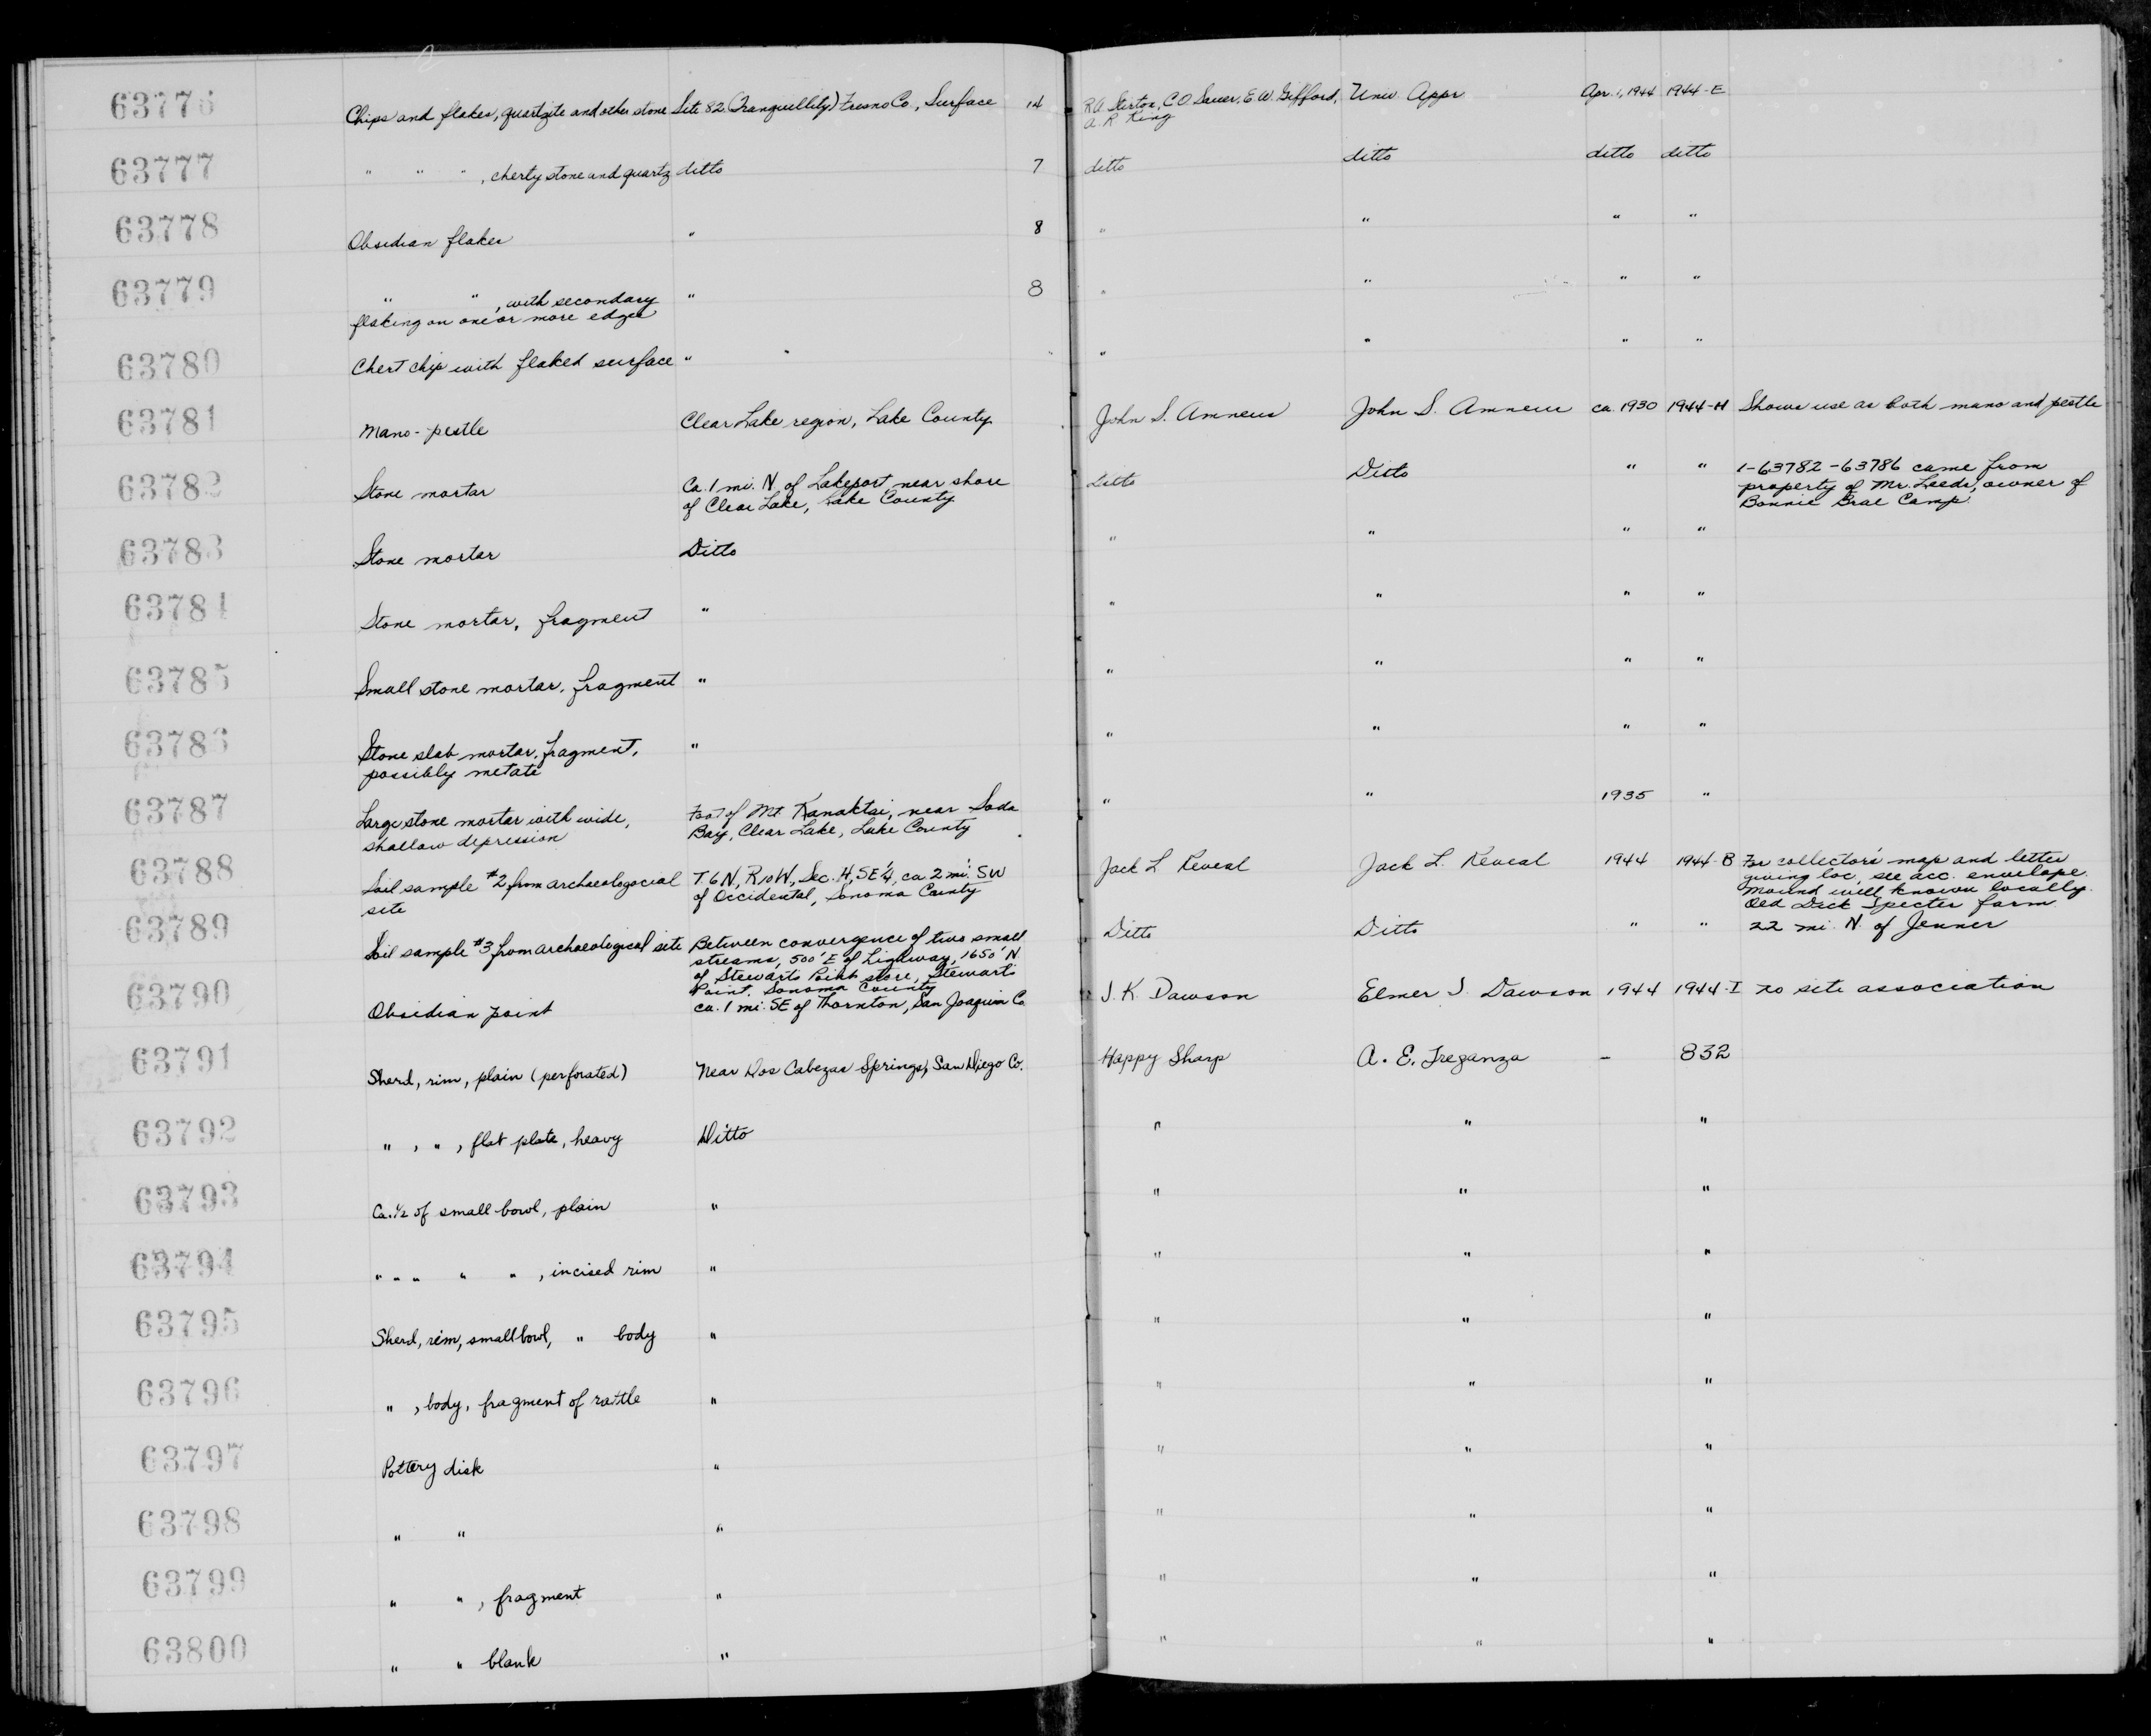 63776 Chips and flakes, quartzite and other stone Site 82 (Tranquillity) Fresno Co., Surface 14 C O Sauer, E. W. Gifford, Univ. Appr. Apr. 1, 1944 1944-E
A. R. King
63777 " " ", cherty stone and quartz ditto 7 ditto ditto ditto ditto
63778 Obsidian flakes " 8 " " " "
63779 " ", with secondary " 8 " " " "
flaking on one or more edges
63780 Chert chip with flaked surface " " " " "
63781 Mano-pestle Clear Lake region, Lake County John S. John S. ca. 1930 1944-H Shows use as both mano and pestle
63782 Stone mortar Ca. 1 mi. N. of Lakeport, near shore Ditto Ditto " " 1-63782-63786 came from
of Clear Lake, Lake County property of Mr. Leeds, owner of
Bonnie Brae Camp
63783 Stone mortar Ditto " " " "
63784 Stone mortar, fragment " " " " "
63785 Small stone mortar, fragment " " " " "
63786 Stone slab mortar, fragment, " " " " "
possibly metate
63787 Large stone mortar with wide, Foot of Mt. Kanaktai, near Soda " " 1935 "
shallow depression Bay, Clear Lake, Lake County
63788 Soil sample #2 from archaeologocial T. 6 N, R 10 W, Sec. H, SE ¼, ca. 2 mi. SW Jack L Reveal Jack L. Reveal 1944 1944-B For collector's map and letter
site of Occidental, Sonoma County giving loc, see acc. envelope.
Mound well known locally.
Old Dick Specter farm
63789 Soil sample #3 from archaeological site Between convergence of two small Ditto Ditto " " 22 mi. N. of Jenner
streams, 500' E of Highway, 1650' N.
of Stewarts Point store, Stewarts
Point, Sonoma County
63790 Obsidian point ca. 1 mi. SE of Thornton, San Joaquin Co. J. K. Dawson Elmer J. Dawson 1944 1944-I no site association
63791 Sherd, rim, plain (perforated) Near Dos Cabezas Springs, San Diego Co. Happy Sharp A. E. Treganza - 832
63792 " , " , flat plate, heavy Ditto " " "
63793 Ca. ½ of small bowl, plain " " " "
63794 " " " " " , incised rim " " " "
63795 Sherd, rim, small bowl, " body " " " "
63796 " , body, fragment of rattle " " " "
63797 Pottery disk " " " "
63798 " " " " " "
63799 " " , fragment " " " "
63800 " " blank " " " "